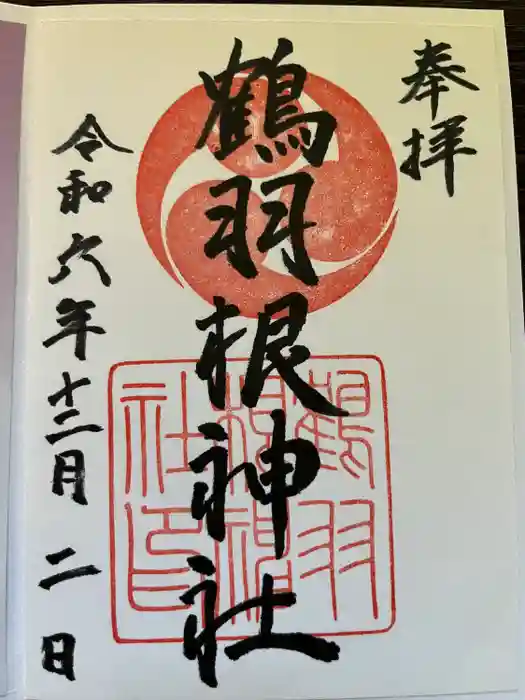 奉拝
鶴羽根神社
令和六年十二月二日
鶴羽
根神
社印